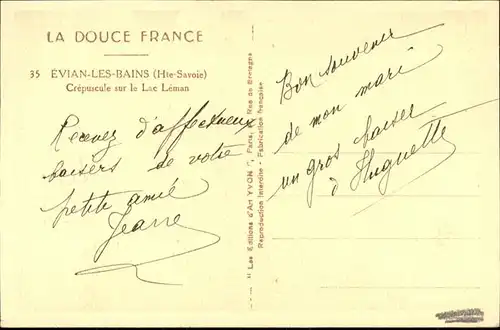 LA DOUCE FRANCE
35 ÉVIAN-LES-BAINS (Hte-Savoie)
Crépuscule sur le Lac Léman
Recevez d'affectueux
baisers de votre
petite amie
Jeanne
" Les Editions d'Art YVON ", Paris, Rue de Bretagne
Reproduction Interdite - Fabrication française
Bon souvenir
de mon mari
un gros baiser
à Huguette